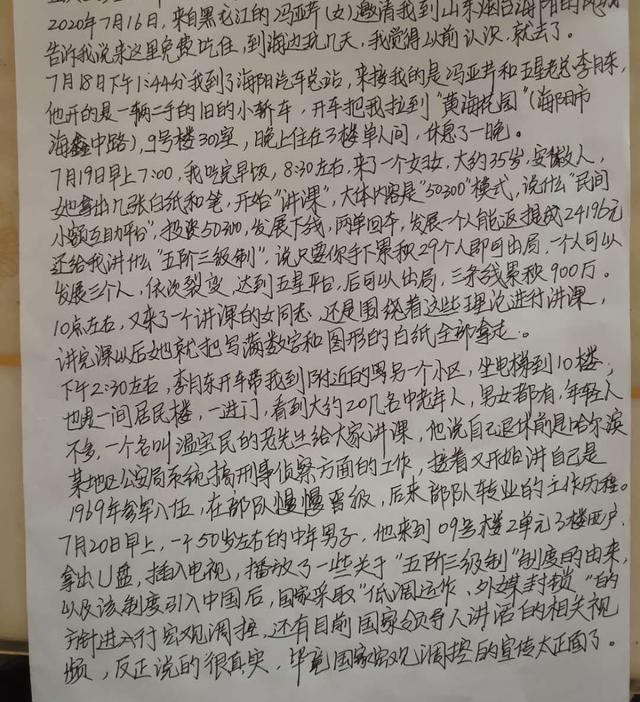 2020年7月16日，来自黑龙江的冯亚芹(女)邀请我到山东烟台海阳的
告诉我说来这里免费吃住，到海边玩几天，我觉得以前认识，就去了。
7月18日下午1:44分我到了海阳汽车总站，来接我的是冯亚芹和五星老总李月东，
他开的是一辆二手的旧的小轿车，开车把我拉到"黄海花园"(海阳市
海鑫中路)，9号楼301室，晚上住在3楼单人间，休息了一晚。
7月19日早上7:00，我吃完早饭，8:30左右，来了一个女的，大约35岁，安徽人，
她拿出几张白纸和笔，开始"讲课"，大体内容是"50300"模式，说什么"民间
小额互助平台"，投资50300，发展下线，两单回本，发展一个人能返提成24196元
还给我讲什么"五阶三级制"。说只要你手下累积29个人即可出局，一个人可以
发展三个人，依次裂变，达到五星平台，后可以出局，三条线累积900万。
10点左右，又来了一个讲课的女同志，还是围绕着这些理论进行讲课，
讲完课以后她就把写满数字和图形的白纸全部拿走。
下午2:30左右，李月东开车带我到附近的另另一个小区，坐电梯到10楼，
也是一间居民楼，一进门，看到大约20几名中老年人，男女都有，年轻人
不多，一个名叫温宝民的老先生给大家讲课，他说自己退休前是哈尔滨
某地区公安局系统搞刑事侦察方面的工作，接着又开始讲自己是
1969年参军入伍，在部队慢慢晋级，后来部队转业的工作历程。
7月20日早上，一个50岁左右的中年男子，他来到09号楼2单元3楼西户，
拿出U盘，插入电视，播放了一些关于"五阶三级制"制度的由来，
以及该制度引入中国后，国家采取"低调运作、外媒封锁"的
方针进入行宏观调控，还有目前国家领导人讲话的相关视
频，反正说的很真实，毕竟国家宏观调控的宣传太正面了。